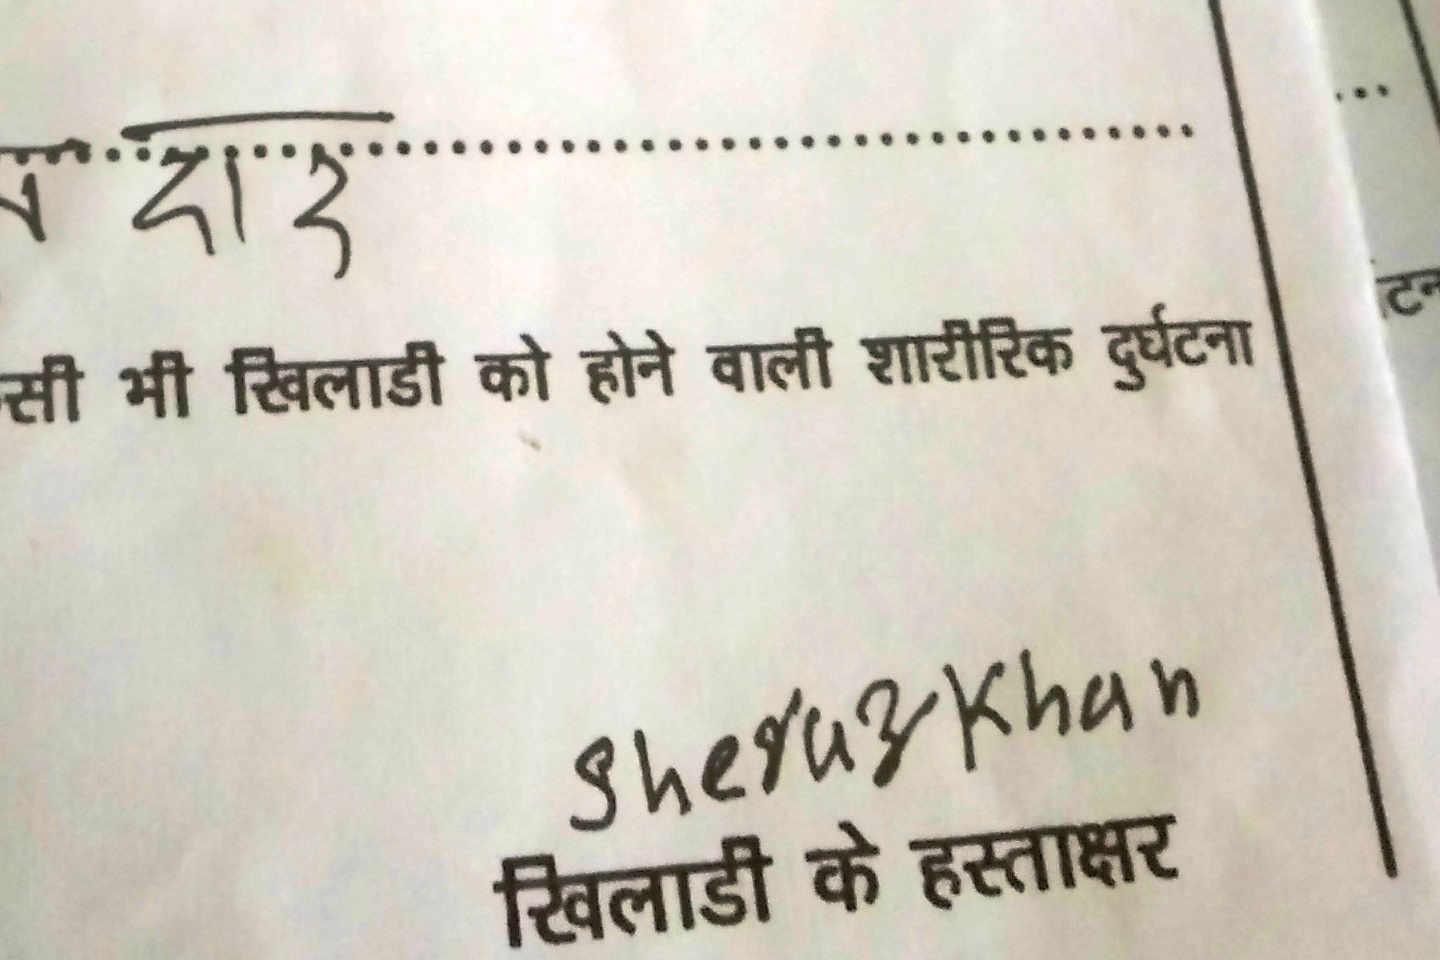 दार
भी खिलाडी को होने वाली शारीरिक दुर्घटना
Sheraz Khan
खिलाडी के हस्ताक्षर